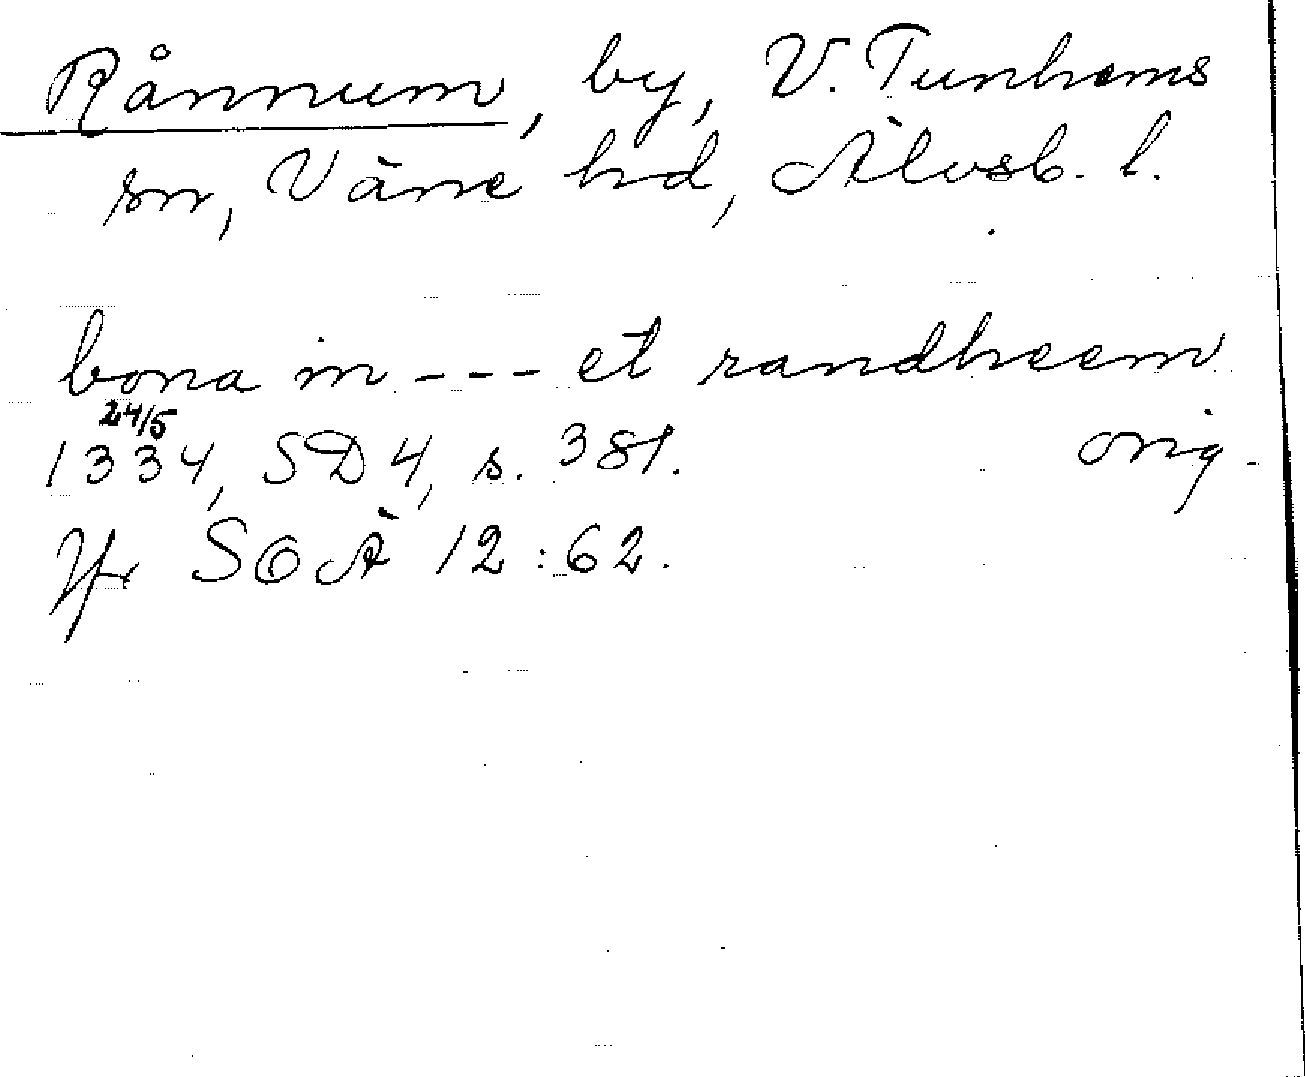 Rånnum, by, V. Tunhems
sn, Väne hd, Älvsb. l.
bona in --- et randheem
24/5
1334, SD 4, s. 381. orig.
Jfr SOÄ 12:62.